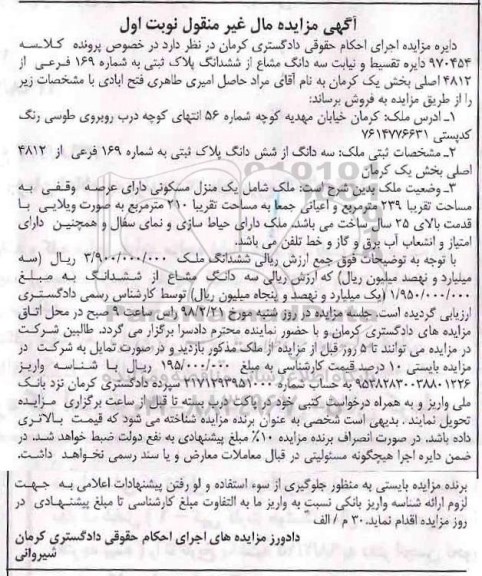 آگهی مزایده مال غیر منقول نوبت اول
دایره مزایده اجرای احکام حقوقی دادگستری کرمان در نظر دارد در خصوص پرونده کلاسه
۹۷۰۴۵۴ دایره تقسیط و نیابت سه دانگ مشاع از ششدانگ پلاک ثبتی به شماره ۱۶۹ فرعی از
۴۸۱۲ اصلی بخش یک کرمان به نام آقای مراد حاصل امیری طاهری فتح ابادی با مشخصات زیر
را از طریق مزایده به فروش برساند:
۱ـ ادرس ملک: کرمان خیابان مهدیه کوچه شماره ۵۶ انتهای کوچه درب روبروی طوسی رنگ
کدپستی ۷۶۱۴۷۷۶۶۳۱
۲ـ مشخصات ثبتی ملک: سه دانگ از شش دانگ پلاک ثبتی به شماره ۱۶۹ فرعی از ۴۸۱۲
اصلی بخش یک کرمان
۳ـ وضعیت ملک بدین شرح است: ملک شامل یک منزل مسکونی دارای عرصه وقفی به
مساحت تقریبا ۲۳۹ مترمربع و اعیانی جمعا به مساحت تقریبا ۲۱۰ مترمربع به صورت ویلایی با
قدمت بالای ۲۵ سال ساخت می باشد. ملک دارای حیاط سازی و نمای سفال و همچنین دارای
امتیاز و انشعاب آب برق و گاز و خط تلفن می باشد.
با توجه به توضیحات فوق جمع ارزش ریالی ششدنگ ملک ۳/۹۰۰/۰۰۰/۰۰۰ ریال (سه
میلیارد و نهصد میلیون ریال) که ارزش ریالی سه دانگ مشاع از ششدانگ به مبلغ
۱/۹۵۰/۰۰۰/۰۰۰ (یک میلیارد و نهصد و پنجاه میلیون ریال) توسط کارشناس رسمی دادگستری
ارزیابی گردیده است. جلسه مزایده در روز شنبه مورخ ۹۸/۲/۲۱ راس ساعت ۹ صبح در محل اتاق
مزایده های دادگستری کرمان و با حضور نماینده محترم دادسرا برگزار می گردد. طالبین شرکت
در مزایده می توانند تا ۵ روز قبل از مزایده از ملک مذکور بازدید و در صورت تمایل به شرکت در
مزایده بایستی ۱۰ درصد قیمت کارشناسی به مبلغ ۱۹۵/۰۰۰/۰۰۰ ریال با شناسه واریز
۹۵۳۸۲۸۳۰۰۳۸۸۰۱۲۲۶ به حساب شماره ۲۱۷۱۲۹۳۹۵۱۰۰۰ سپرده دادگستری کرمان نزد بانک
ملی واریز و به همراه درخواست کتبی خود در پاکت درب بسته تا قبل از ساعت برگزاری مزایده
تحویل نمایند. بدیهی است شخصی به عنوان برنده مزایده شناخته می شود که قیمت بالاتری
داده باشد. در صورت انصراف برنده مزایده ۱۰٪ مبلغ پیشنهادی به نفع دولت ضبط خواهد شد. در
ضمن دایره اجرا هیچگونه مسئولیتی در قبال معاملات معارض و یا سند رسمی نخواهد داشت.
برنده مزایده بایستی به منظور جلوگیری از سوء استفاده و لو رفتن پیشنهادات اعلامی به جهت
لزوم ارائه شناسه واریز بانکی نسبت به واریز ما به التفاوت مبلغ کارشناسی تا مبلغ پیشنهادی در
روز مزایده اقدام نماید. ۳۰ م / الف
دادورز مزایده های اجرای احکام حقوقی دادگستری کرمان
شیروانی